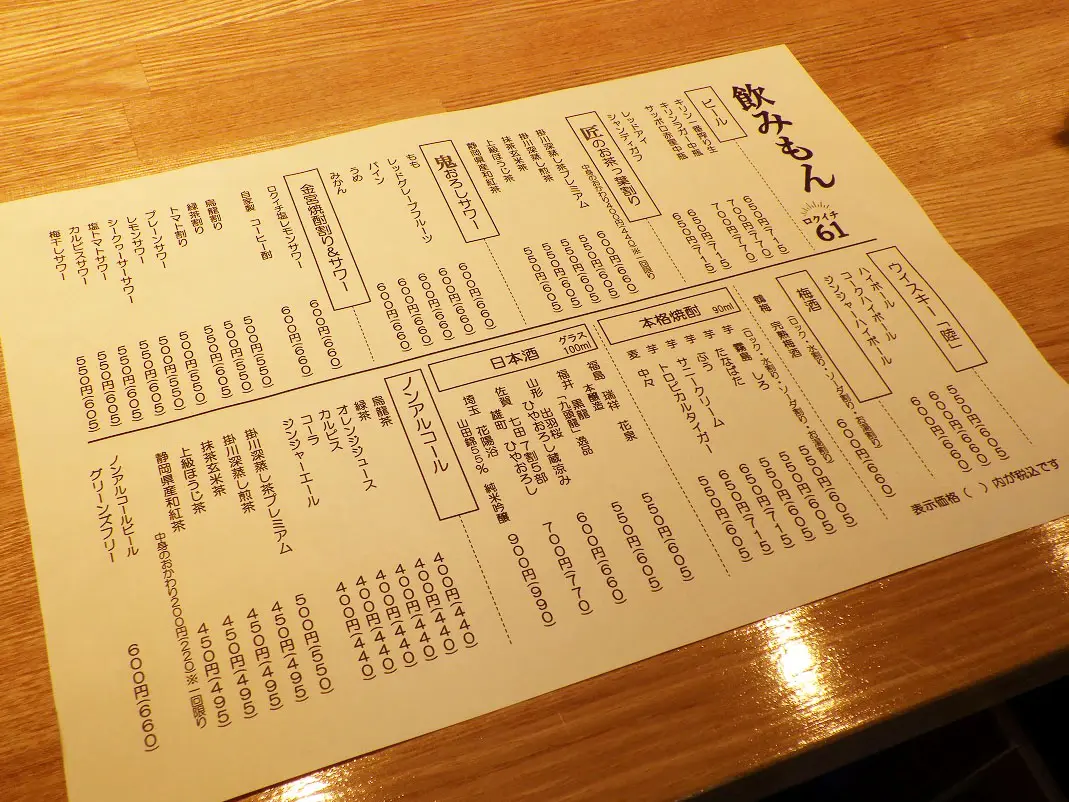 飲みもん
ロクイチ
61
ビール
キリン一番搾り生 650円(715)
キリンラガー中瓶 700円(770)
サッポロ赤星中瓶 700円(770)
レッドアイ 650円(715)
シャンディガフ 650円(715)
匠のお茶っ葉割り
中身のおかわり400円(440)※一回限り
掛川深蒸し茶プレミアム 600円(660)
掛川深蒸し煎茶 550円(605)
抹茶玄米茶 550円(605)
上級ほうじ茶 550円(605)
静岡県産和紅茶 550円(605)
鬼おろしサワー
もも 600円(660)
レッドグレープフルーツ 600円(660)
パイン 600円(660)
うめ 600円(660)
みかん 600円(660)
金宮焼酎割り&サワー
ロクイチ塩レモンサワー 600円(660)
自家製 コーヒー酎 600円(660)
烏龍割り 500円(550)
緑茶割り 500円(550)
トマト割り 550円(605)
プレーンサワー 500円(550)
レモンサワー 500円(550)
シークヮーサーサワー 550円(605)
塩トマトサワー 550円(605)
カルピスサワー 550円(605)
梅干しサワー 550円(605)
ウィスキー「陸」
ハイボール 550円(605)
コークハイボール 600円(660)
ジンジャーハイボール 600円(660)
梅酒
(ロック、水割り・ソーダ割り・お湯割り)
鶴梅 完熟梅酒 600円(660)
本格焼酎 90ml
(ロック、水割り・ソーダ割り・お湯割り)
霧島 しろ 550円(605)
芋 たなばた 550円(605)
芋 ぶう 550円(605)
芋 サニークリーム 650円(715)
芋 トロピカルタイガー 650円(715)
麦 中々 550円(605)
日本酒 グラス100ml
福島 瑞祥 花泉
本醸造 550円(605)
福井 黒龍
「九頭龍」逸品 550円(605)
山形 出羽桜 蔵涼み
ひやおろし 600円(660)
佐賀 七田 7割5部
雄町 ひやおろし 700円(770)
埼玉 花陽浴
山田錦55% 純米吟醸 900円(990)
ノンアルコール
烏龍茶 400円(440)
緑茶 400円(440)
オレンジジュース 400円(440)
カルピス 400円(440)
コーラ 400円(440)
ジンジャーエール 400円(440)
掛川深蒸し茶プレミアム 500円(550)
掛川深蒸し煎茶 450円(495)
抹茶玄米茶 450円(495)
上級ほうじ茶 450円(495)
静岡県産和紅茶 450円(495)
中身のおかわり200円(220)※一回限り
ノンアルコールビール
グリーンズフリー 600円(660)
表示価格( )内が税込です